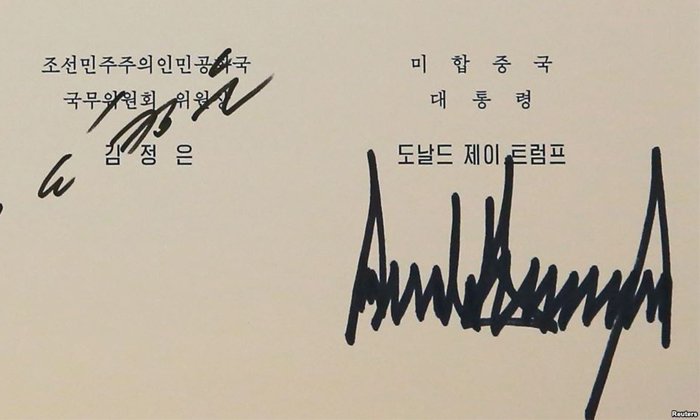 조선민주주의인민공화국
국무위원회 위원장
김정은
미합중국
대통령
도날드 제이 트럼프
Reuters